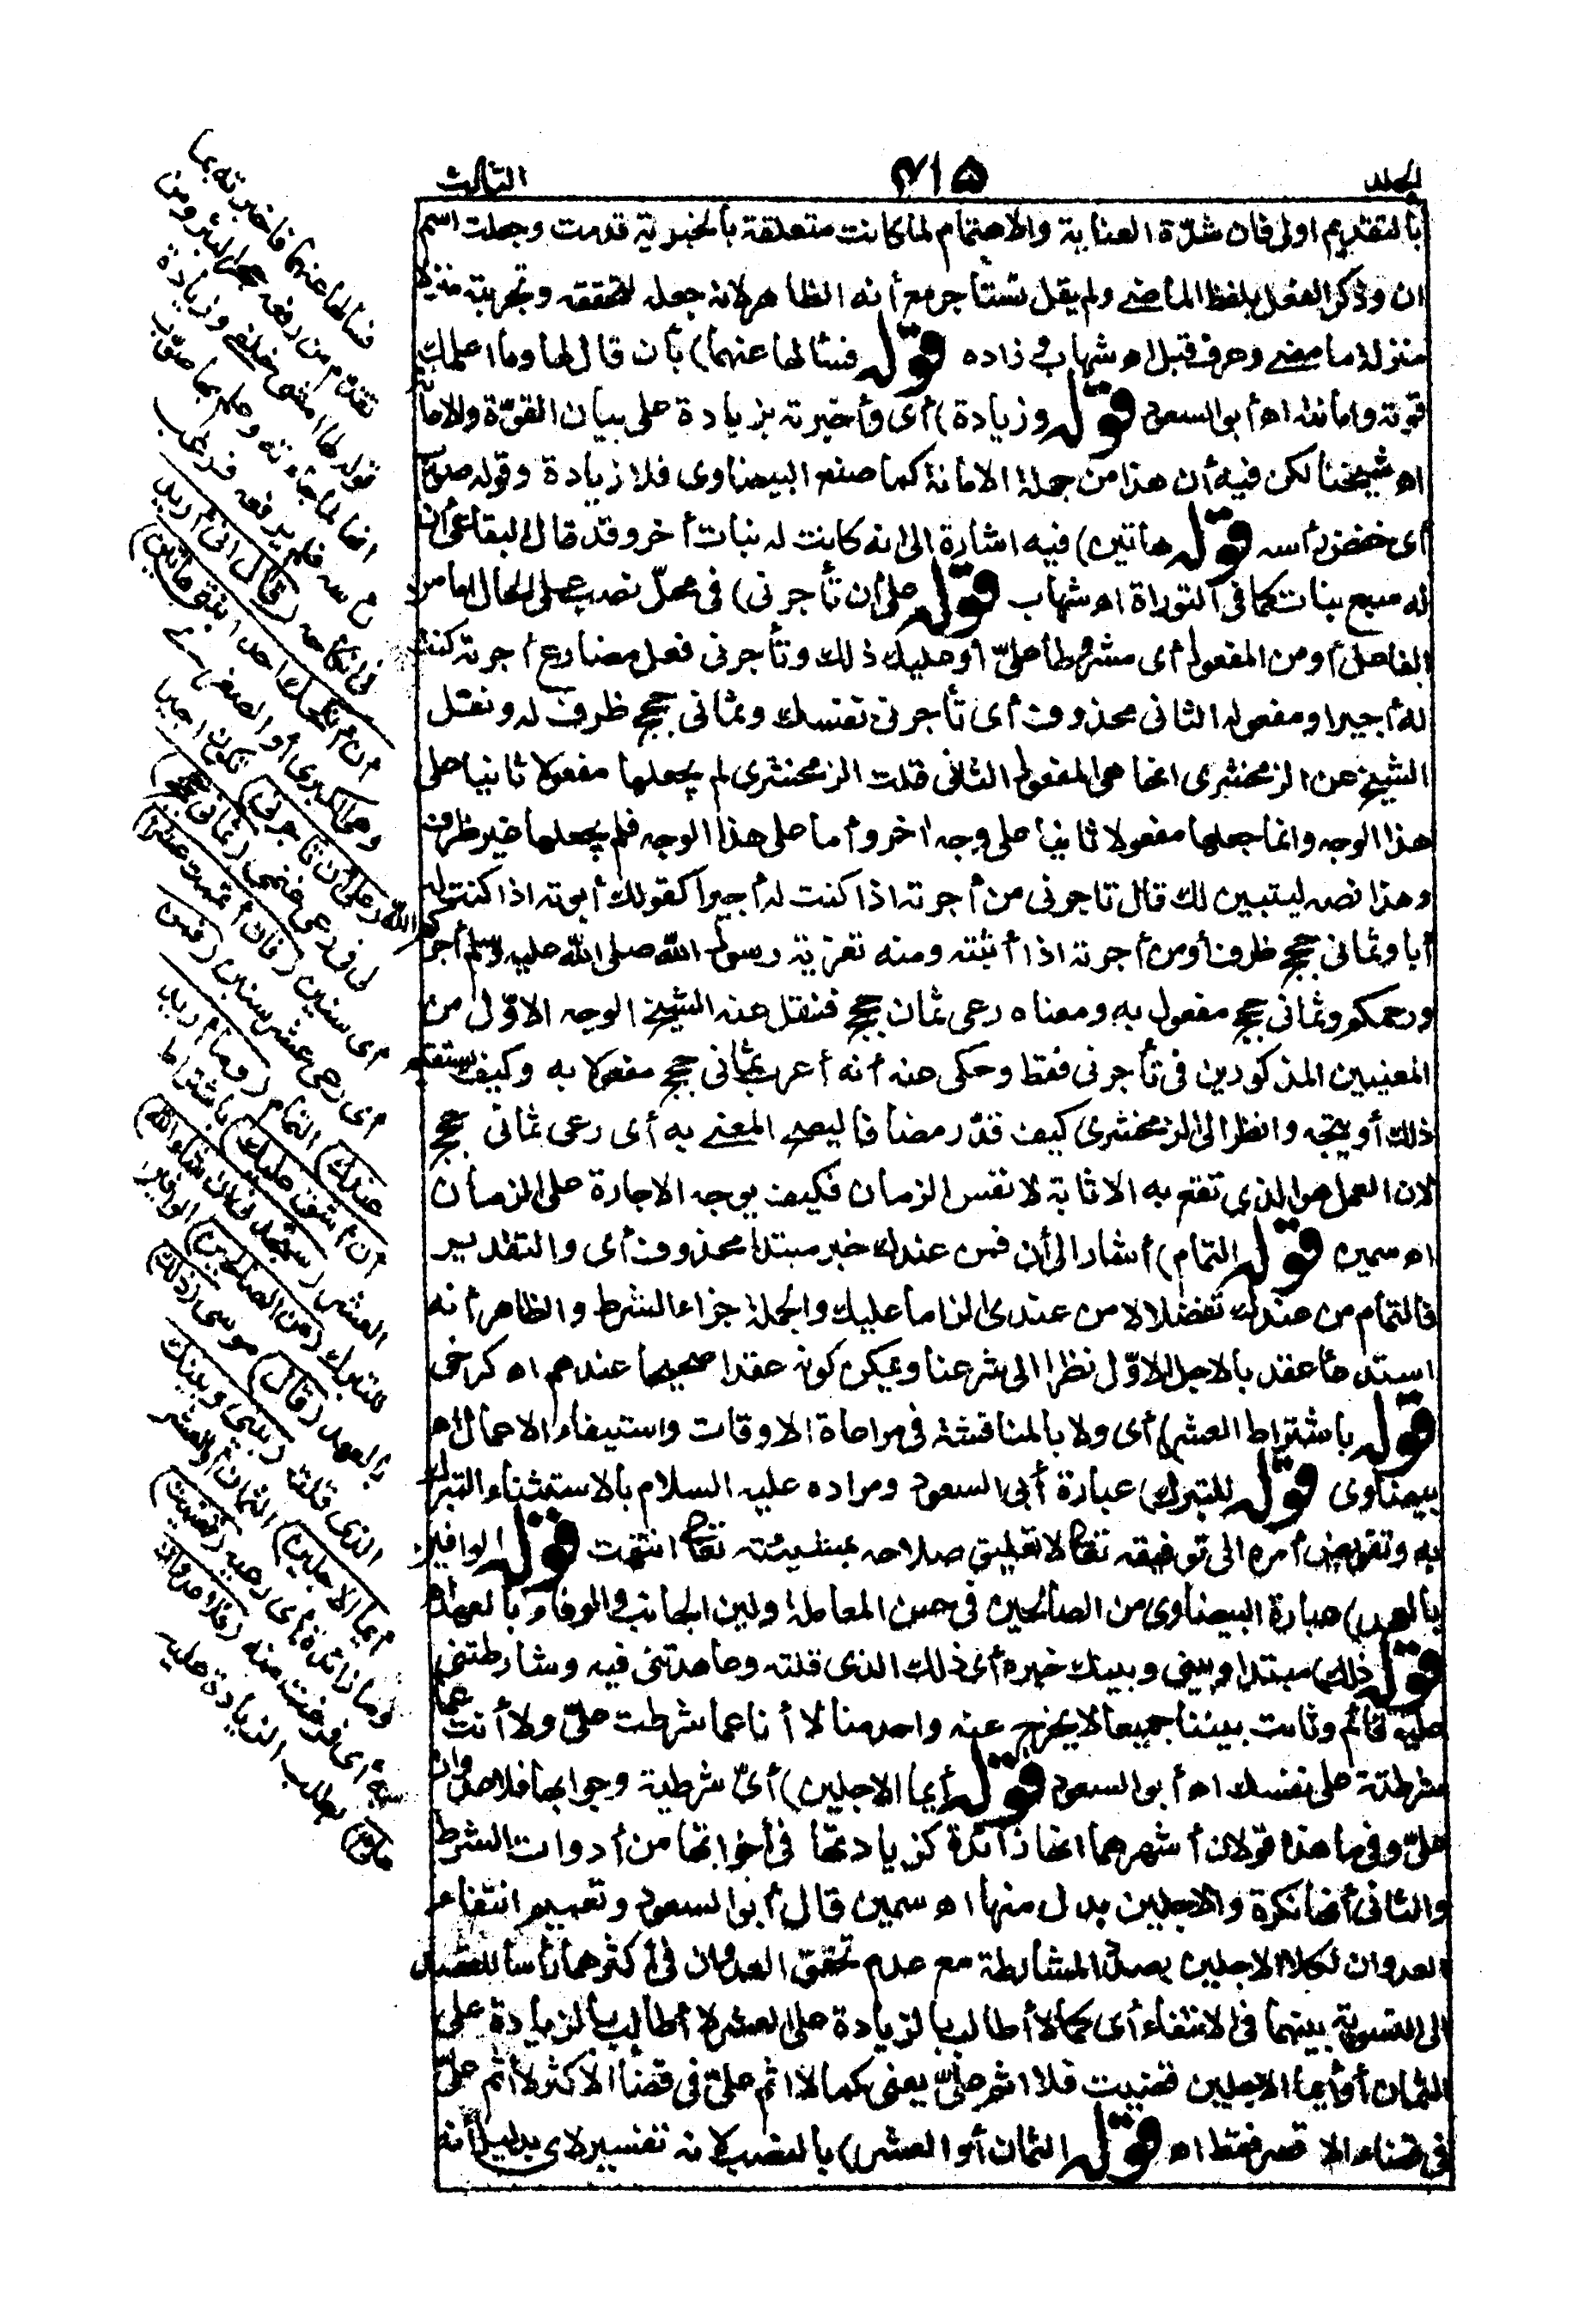 الجلد
٣١٥
الثالث
بالتقديم اولى فان شدّة العناية والاهتمام لما كانت متعلقة بالخبرية قدمت وجعلت اسم
ان وذكر الفعل بلفظ الماضى ولم يقل تستأجر مع أنه الظاهر لانه جعله لتحققه وتجربته منزلا
منزلة ما مضى وعرف قبل اه شهاب وزاده قوله فسألها عنهما) بأن قال لها وما اعلمك
قوته وامانته اه أبو السعود قوله وزيادة) أى وأخبرته بزيادة على بيان القوّة والامانة
اه شيخنا لكن فيه أن هذا من جملة الامانة كما صنع البيضاوى فلا زيادة وقوله صوّب
أى خفض رأسه قوله هاتين) فيه اشارة الى انه كانت له بنات أخر وقد قال البقاعى أن
له سبع بنات كما فى التوراة اه شهاب قوله على أن تأجرنى) فى محلّ نصب على الحال اما من
الفاعل أومن المفعول أى مشروطا علىّ أو عليك ذلك وتأجرنى فعل مضارع أجرته كنت
له أجيرا ومفعوله الثانى محذوف أى تأجرنى نفسك وثمانى حجج ظرف له ونقل
الشيخ عن الزمخشرى انها هى المفعول الثانى قلت الزمخشرى لم يجعلها مفعولا ثانيا على
هذا الوجه وانما جعلها مفعولا ثانيا على وجه اخر وأما على هذا الوجه فلم يجعلها غير ظرف
وهذا نصه ليتبين لك قال تاجرنى من أجرته اذا كنت له أجيرا كقولك أبوته اذا كنت له
أبا وثمانى حجج ظرف أومن أجرته اذا أثبته ومنه تعزية رسول الله صلى الله عليه وسلم أجركم الله
ورحمكم وثمانى حجج مفعول به ومعناه رعى ثمان حجج فنقل عنه الشيخ الوجه الاوّل من
المعنيين المذكورين فى تأجرنى فقط وحكى عنه أنه أعرب ثمانى حجج مفعولا به وكيف يستقيم
ذلك أو يتجه وانظر الى الزمخشرى كيف قدّر مضافا ليصح المعنى به أى رعى ثمانى حجج
لان العمل هو الذى تقع به الاثابة لا نفس الزمان فكيف يوجه الاجارة على الزمان
اه سمين قوله التمام) أشار الى أن فمن عندك خبر مبتدا محذوف أى والتقدير
فالتمام من عندك تفضلا لا من عندى الزاما عليك والجملة جزاء الشرط والظاهر أنه
استدعاء عقد بالاجل الاوّل نظرا الى شرعنا ويمكن كونه عقدا صحيحا عندهم اه كرخى
قوله باشتراط العشر) أى ولا بالمناقشة فى مراعاة الاوقات واستيفاء الاعمال اه
بيضاوى قوله للتبرك) عبارة أبى السعود ومراده عليه السلام بالاستثناء التبرك
به وتفويض أمره الى توفيقه تعالى لا تعليق صلاحه بمشيئته تعالى انتهت قوله الوافين
بالعهد) عبارة البيضاوى من الصالحين فى حسن المعاملة ولين الجانب والوفاء بالعهد اه
قوله ذلك) مبتدا وبينى وبينك خبره أى ذلك الذى قلته وعاهدتنى فيه وشارطتنى
عليه قائم وثابت بيننا جميعا لا يخرج عنه واحد منا لا أنا عما شرطت علىّ ولا أنت عما
شرطته على نفسك اه أبو السعود قوله أيما الاجلين) أىّ شرطية وجوابها فلا عدوان
علىّ وفى ما هذه قولان أشهرهما انها زائدة كزيادتها فى أخواتها من أدوات الشرط
والثانى أنها نكرة والاجلين بدل منها اه سمين قال أبو السعود وتعميم انتفاء
العدوان لكلا الاجلين بصدد المشارطة مع عدم تحقق العدوان فى أكثرهما رأسا للقصد
الى التسوية بينهما فى الانتفاء أى كما لا أطالب بالزيادة على العشر لا أطالب بالزيادة على
الثمان أو أيما الاجلين قضيت فلا اثم علىّ يعنى كما لا اثم علىّ فى قضاء الاكثر لا اثم علىّ
فى قضاء الاقصر فقط اه قوله الثمان أو العشر) بالنصب لانه تفسير لاى بدليل أنه
فسألها عنهما فاخبرته بما
تقدم من رفعه حجر البئر ومن
قوله لها امشى خلفى وزيادة
انها لما جاءته وعلم بها صوّب
رأسه فلم يرفعه فرغب
فى انكاحه (قال انى أريد
أن أنكحك احدى ابنتى هاتين)
وهى الكبرى أو الصغرى
(على أن تأجرنى) تكون اجيرا
لى فى رعى غنمى (ثمانى حجج)
أى سنين (فان أتممت عشرا)
أى رعى عشر سنين (فمن
عندك) التمام (وما أريد
أن أشق عليك) باشتراط
العشر (ستجدنى ان شاء الله)
للتبرك (من الصالحين) الوافين
بالعهد (قال) موسى (ذلك)
الذى قلت (بينى وبينك
أيما الاجلين) الثمان أو العشر
وما زائدة أى رعيه (قضيت)
به أى فرغت منه (فلا عدوان
علىّ) بطلب الزيادة عليه